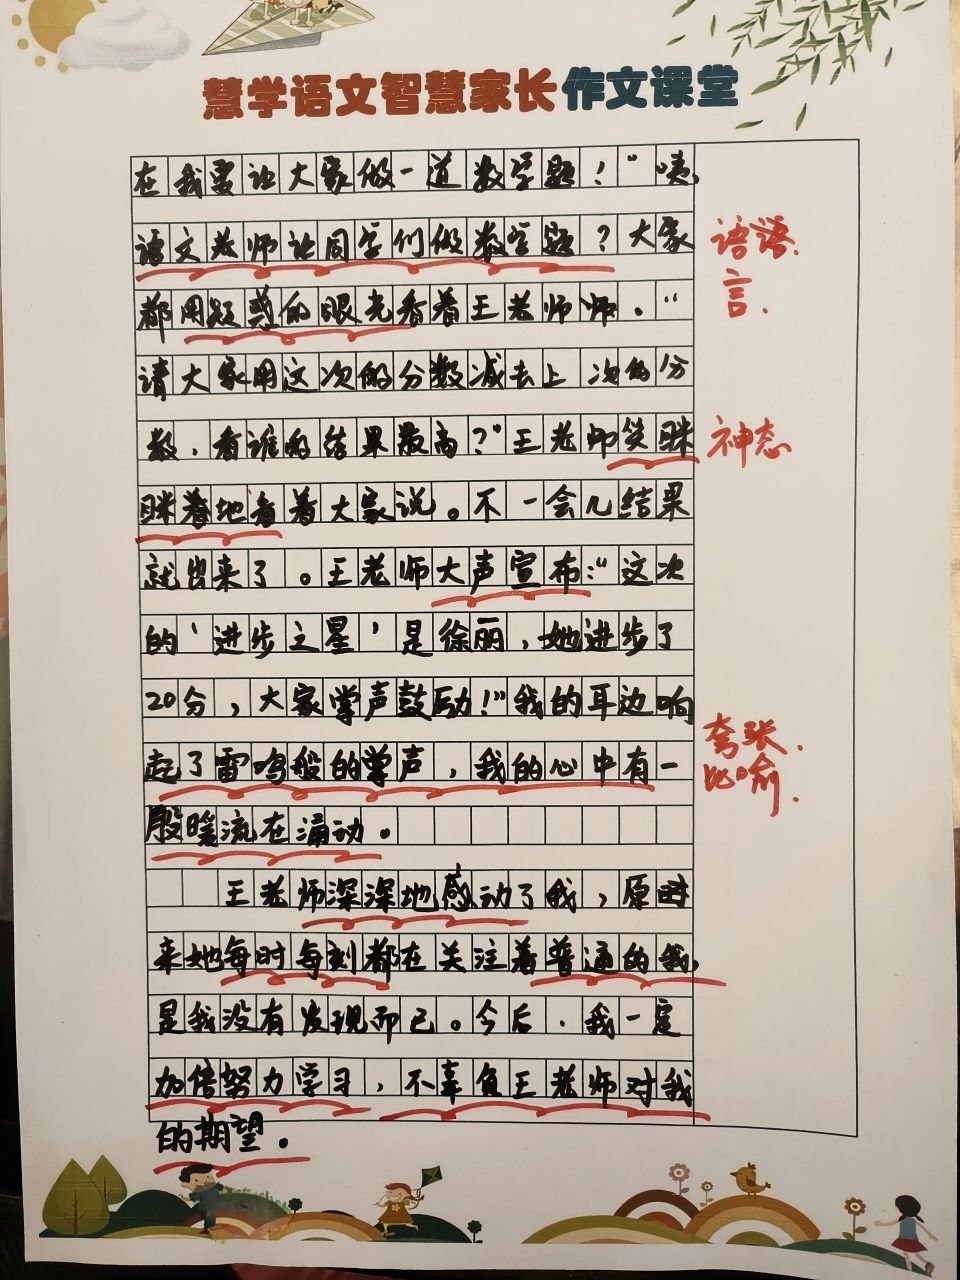 慧学语文智慧家长作文课堂
在我要让大家做一道数学题！"咦，
语文老师让同学们做数学题？大家
都用疑惑的眼光看着王老师师。"
请大家用这次的分数减去上次的分
数，看谁的结果最高？"王老师笑眯
眯着地看着大家说。不一会儿结果
就出来了。王老师大声宣布："这次
的'进步之星'是徐丽，她进步了
20分，大家掌声鼓励！"我的耳边响
起了雷鸣般的掌声，我的心中有一
股暖流在涌动。
王老师深深地感动了我，原
来她每时每刻都在关注着普通的我，
是我没有发现而已。今后，我一定
加倍努力学习，不辜负王老师对我
的期望。
语
言.
神态
夸张.
比喻.